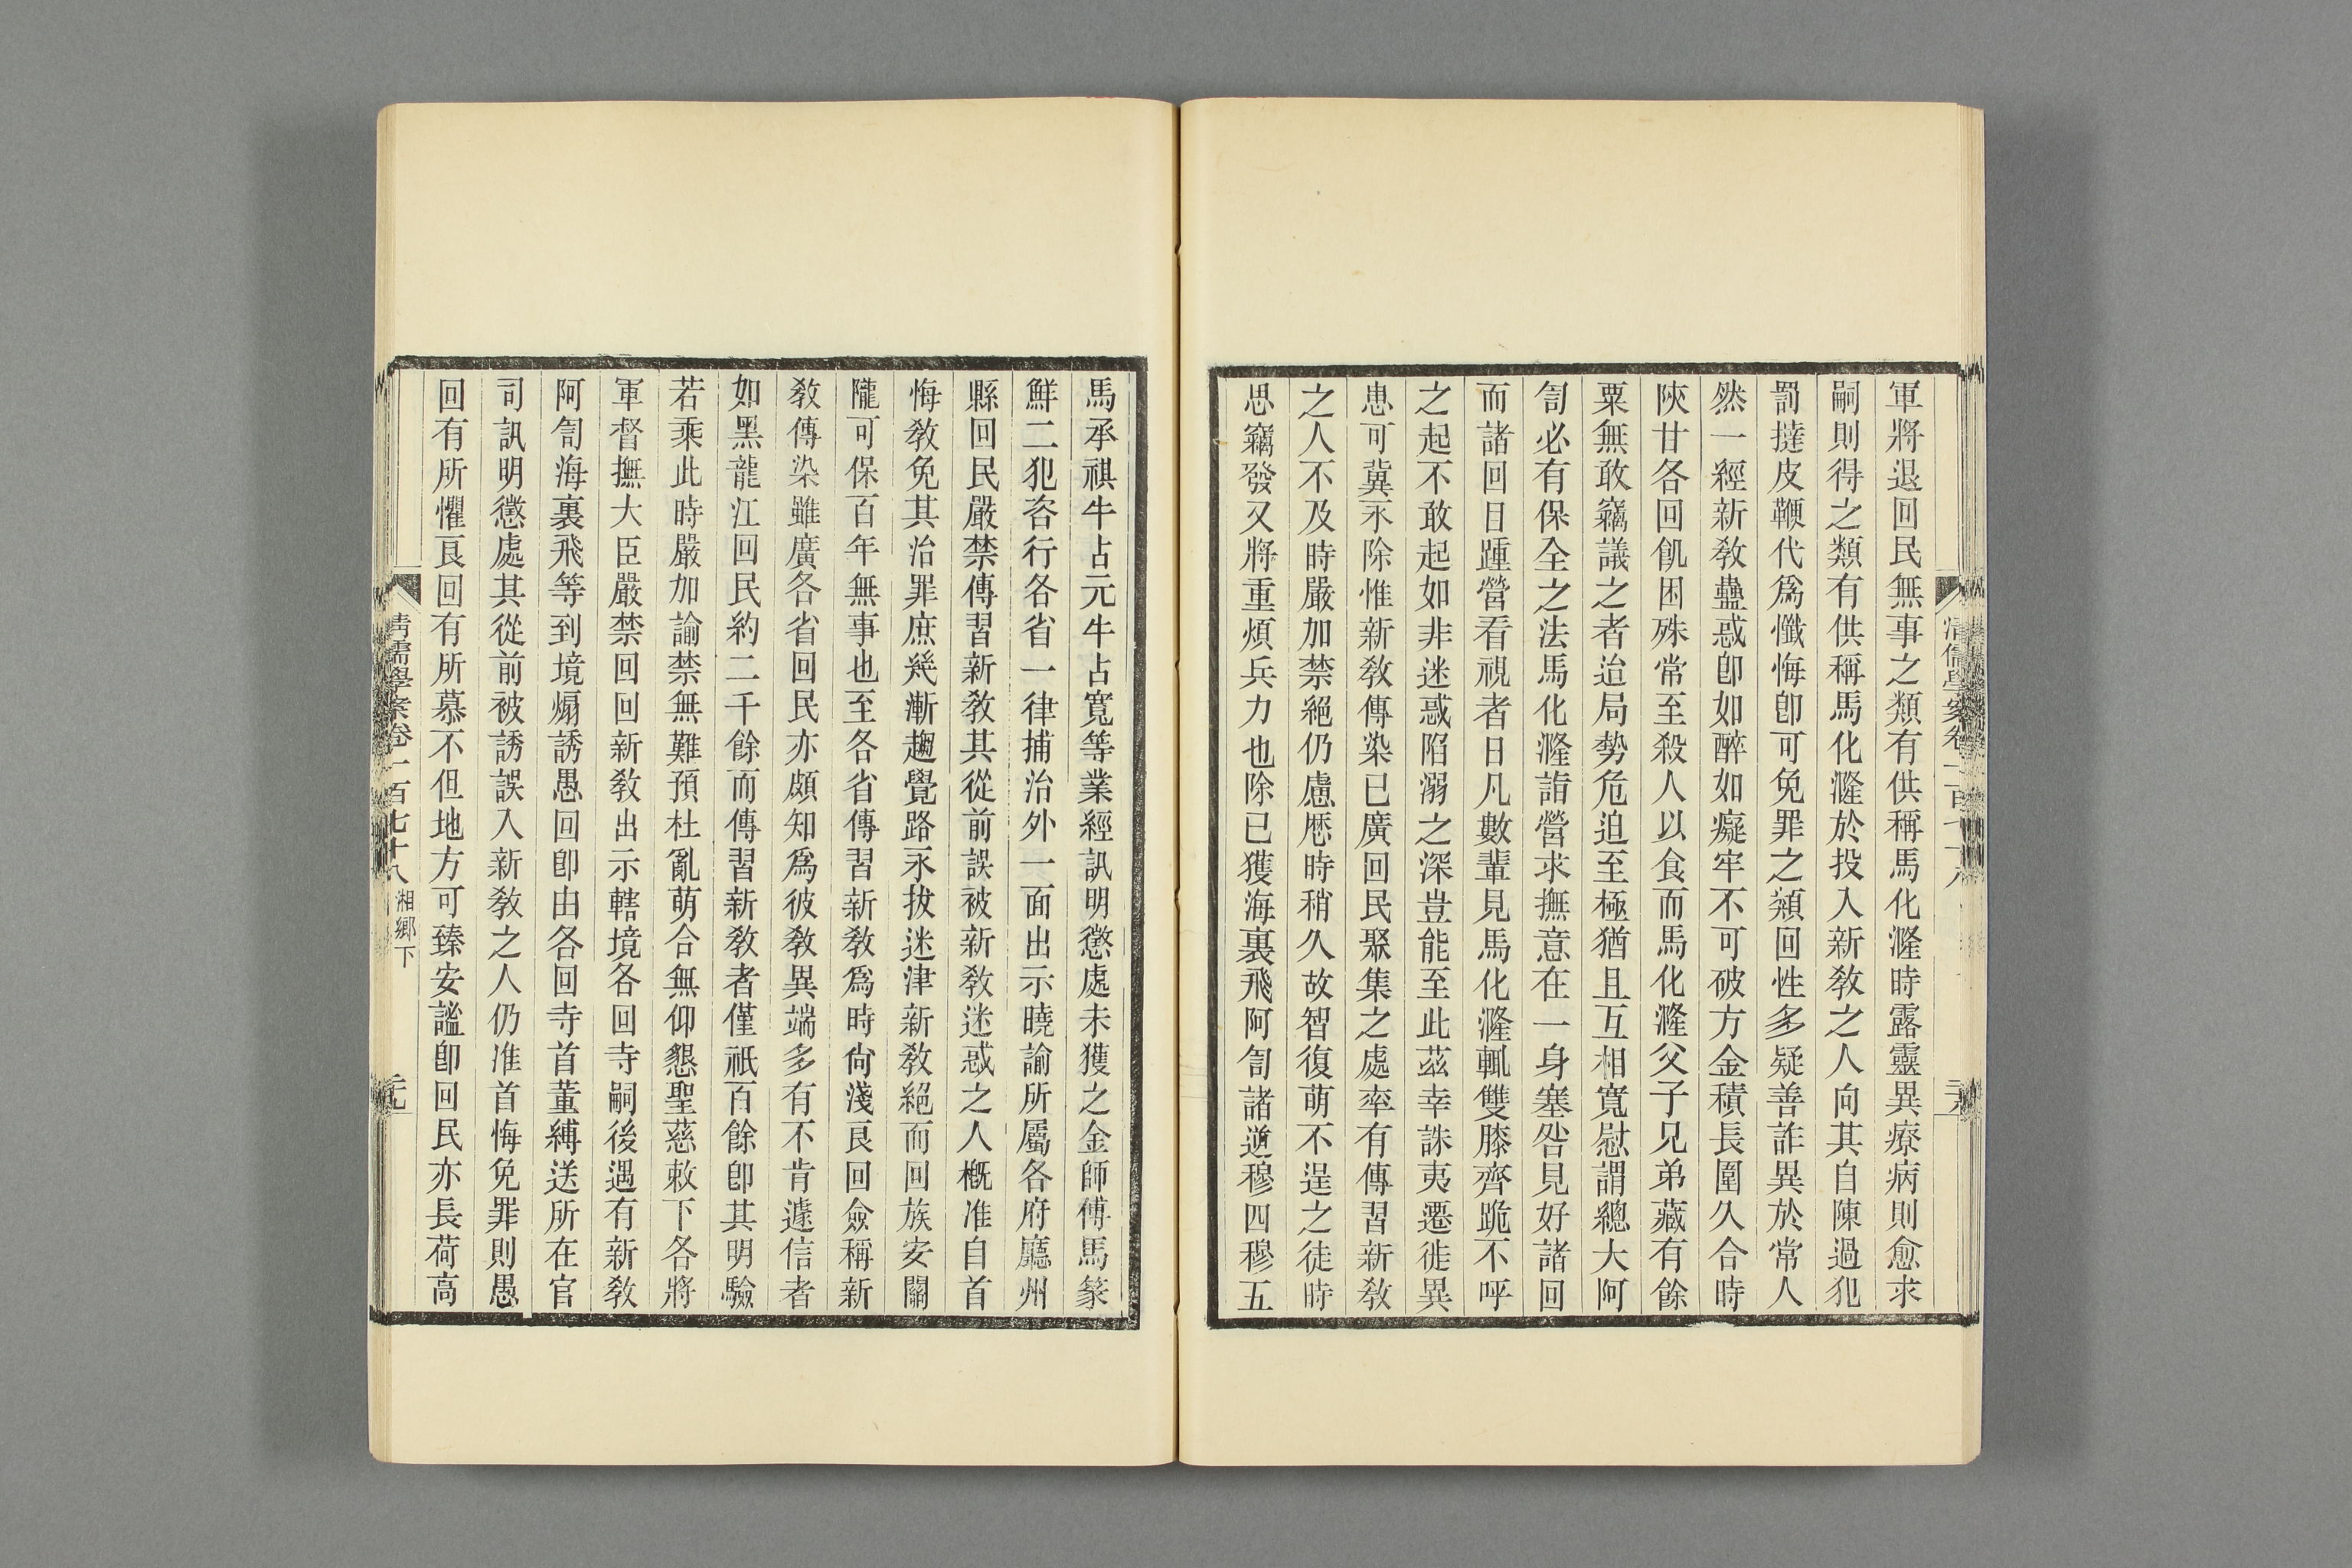 軍將退回民無事之類有供稱馬化漋時露靈異療病則愈求
嗣則得之類有供稱馬化漋於投入新敎之人向其自陳過犯
罰撻皮鞭代爲懺悔卽可免罪之類回性多疑善詐異於常人
然一經新敎蠱惑卽如醉如癡牢不可破方金積長圍久合時
陝甘各回飢困殊常至殺人以食而馬化漋父子兄弟藏有餘
粟無敢竊議之者迨局勢危迫至極猶且互相寬慰謂總大阿
訇必有保全之法馬化漋詣營求撫意在一身塞咎見好諸回
而諸回目踵營看視者日凡數輩見馬化漋輒雙膝齊跪不呼
之起不敢起如非迷惑陷溺之深豈能至此茲幸誅夷遷徙異
患可冀永除惟新敎傳染已廣回民聚集之處率有傳習新敎
之人不及時嚴加禁絕仍慮厯時稍久故智復萌不逞之徒時
思竊發又將重煩兵力也除已獲海裏飛阿訇諸逆穆四穆五
清儒學案卷
馬承祺牛占元牛占寬等業經訊明懲處未獲之金師傅馬篆
鮮二犯咨行各省一律捕治外一面出示曉諭所屬各府廳州
縣回民嚴禁傳習新敎其從前誤被新敎迷惑之人槪准自首
悔敎免其治罪庶幾漸趨覺路永拔迷津新敎絕而回族安關
隴可保百年無事也至各省傳習新敎爲時尙淺良回僉稱新
敎傳染雖廣各省回民亦頗知爲彼敎異端多有不肯遽信者
如黑龍江回民約二千餘而傳習新敎者僅祇百餘卽其明驗
若乘此時嚴加諭禁無難預杜亂萌合無仰懇聖慈敕下各將
軍督撫大臣嚴禁回回新敎出示轄境各回寺嗣後遇有新敎
阿訇海裏飛等到境煽誘愚回卽由各回寺首董縛送所在官
司訊明懲處其從前被誘誤入新敎之人仍准首悔免罪則愚
回有所懼良回有所慕不但地方可臻安謐卽回民亦長荷高
清儒學案卷一百七十八 湘鄉下